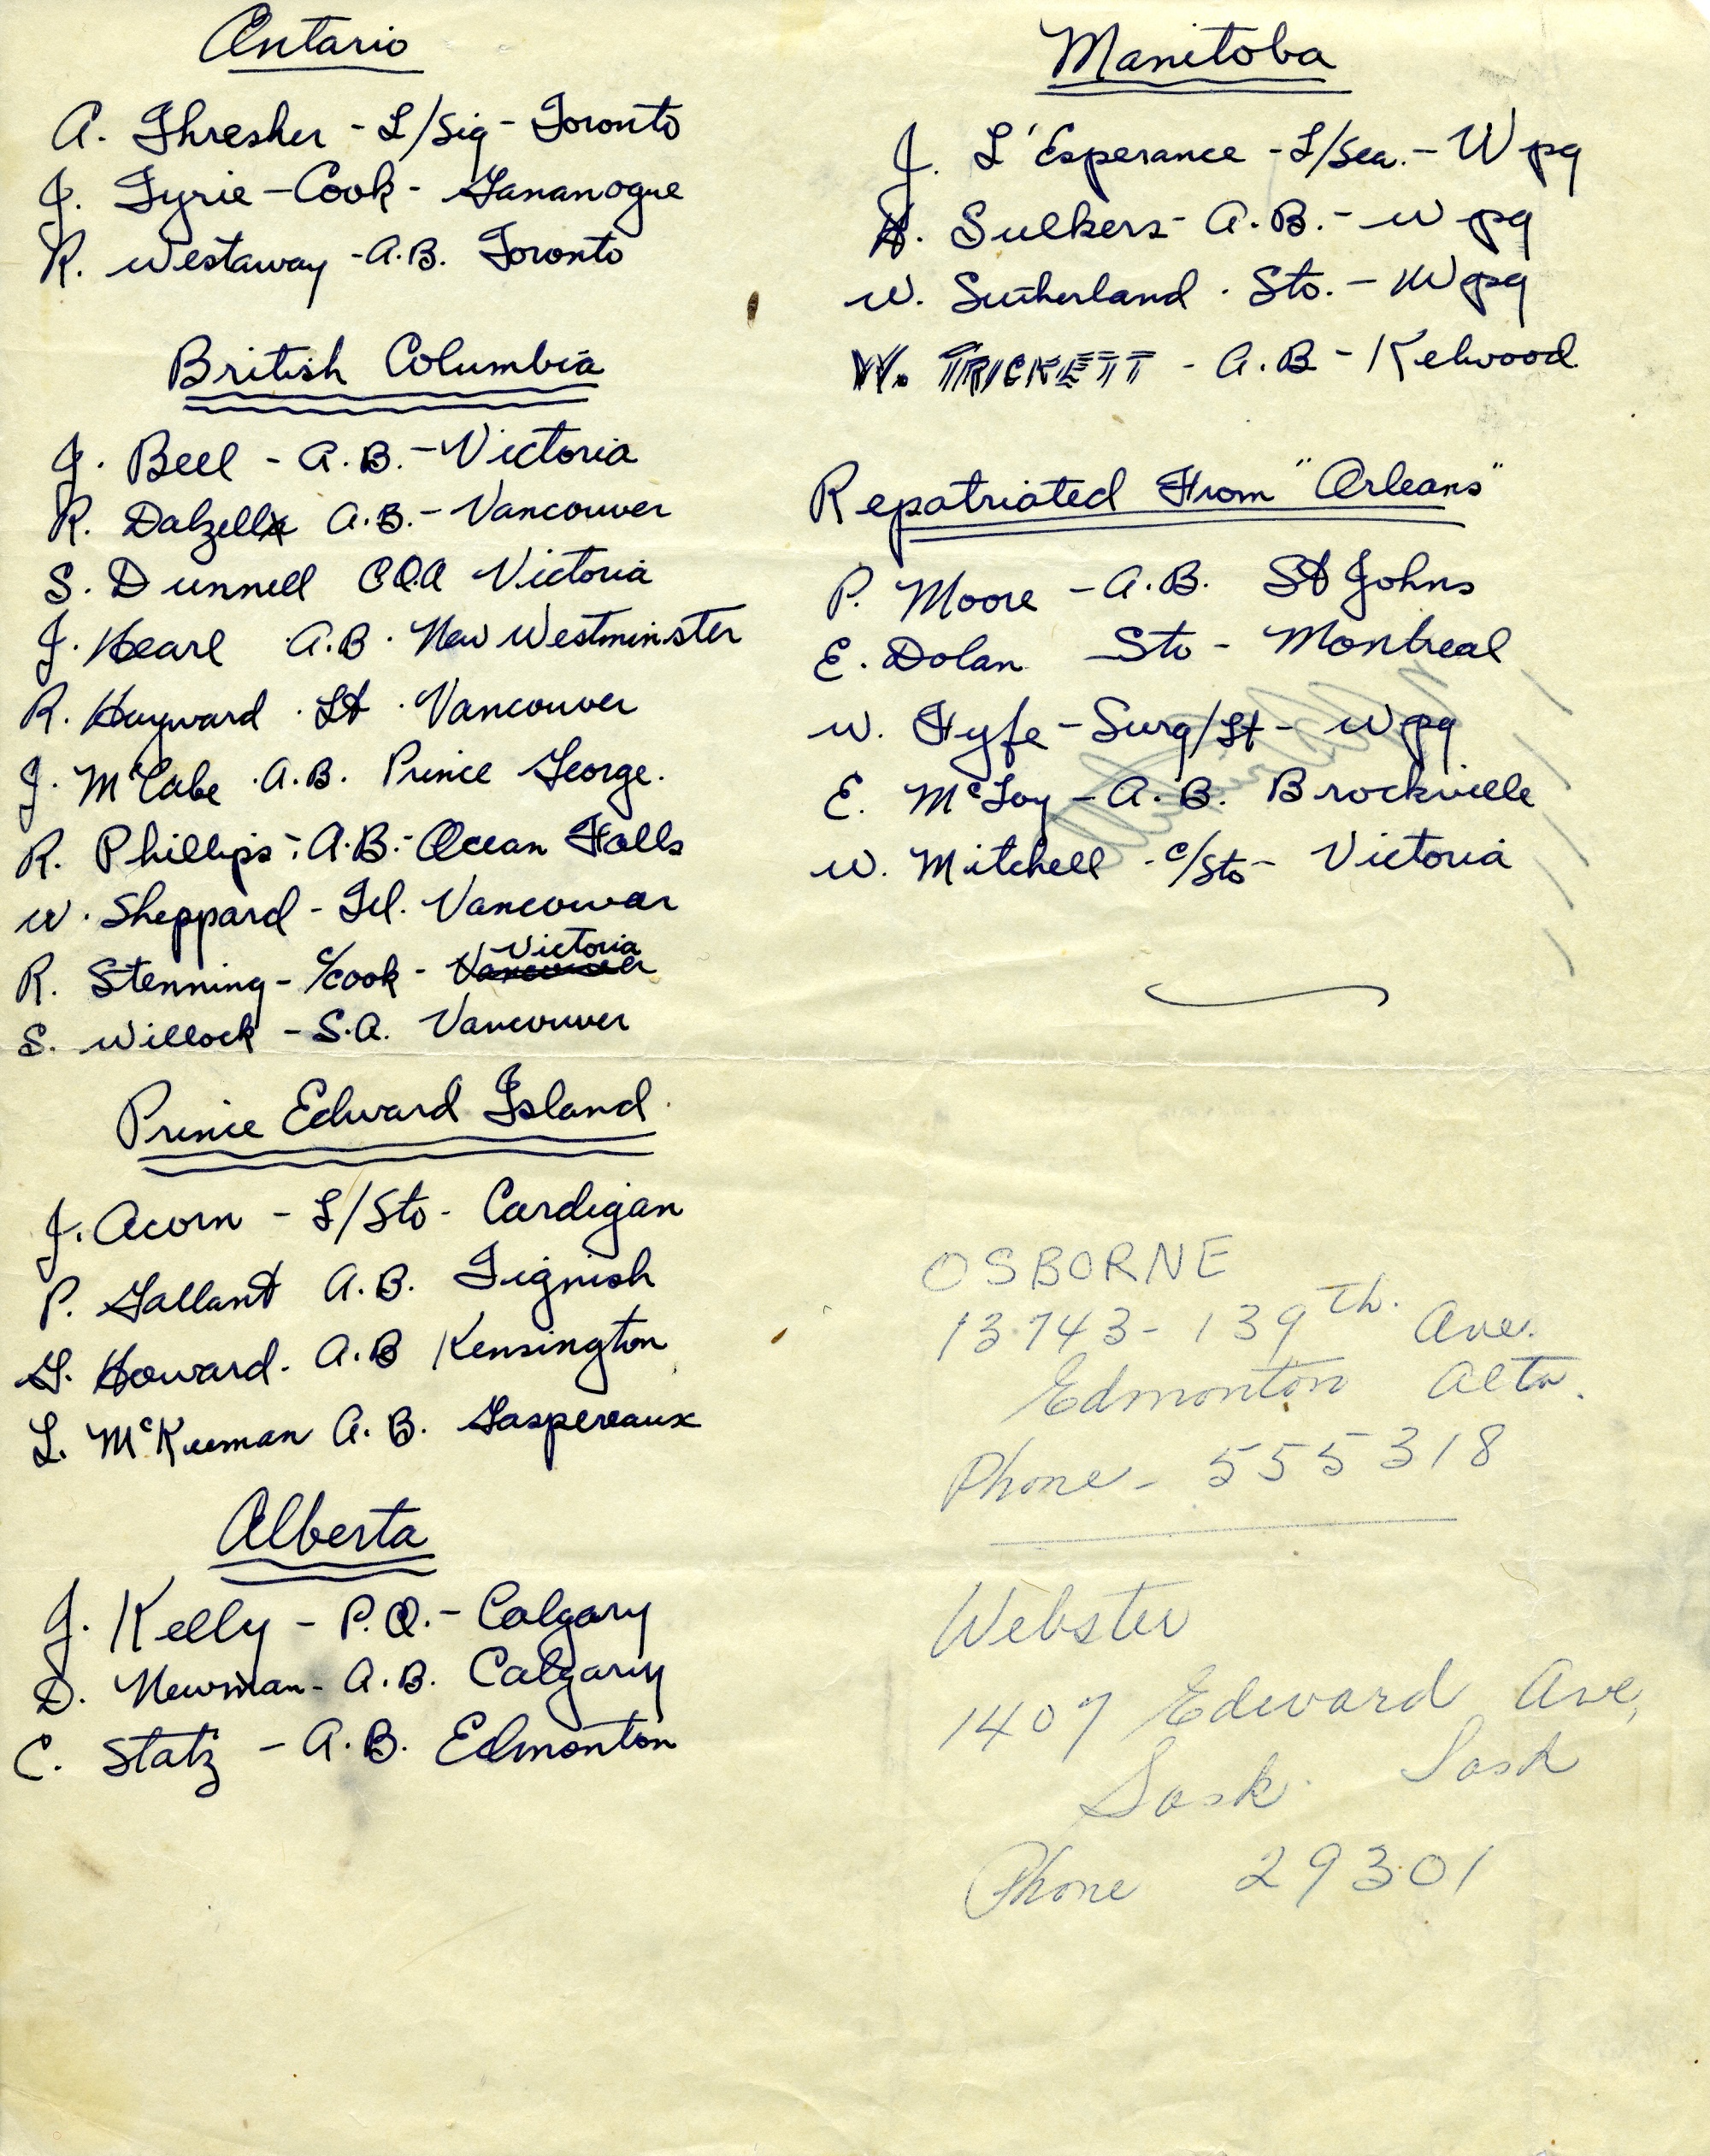 Ontario
A. Thresher - L/Sig - Toronto
J. Tyrie - Cook - Gananogue
R. Westaway - A.B. Toronto
British Columbia
J. Bell - A.B. - Victoria
R. Dalzell A.B. - Vancouver
S. Dunnell C.O.A Victoria
J. Hearl A.B. New Westminster
R. Hayward . Lt . Vancouver
J. McCabe . A.B. Prince George.
R. Phillips - A.B. - Ocean Falls
W. Sheppard - Tel. Vancouver
R. Stenning - c/cook - Vancouver Victoria
S. Willock - S.A. Vancouver
Prince Edward Island
J. Acorn - L/Sto - Cardigan
P. Gallant A.B. Tignish
G. Howard - A.B Kensington
L. McKieman A.B. Gaspereaux
Alberta
J. Kelly - P.O. - Calgary
D. Newman - A.B. Calgary
C. Statz - A.B. Edmonton
Manitoba
J. L'Esperance - L/Sea. - Wpg
H. Sulkers - A.B. - Wpg
W. Sutherland . Sto. - Wpg
W. TRICKETT - A.B - Kelwood
Repatriated From "Orleans"
P. Moore - A.B. St Johns
E. Dolan Sto - Montreal
W. Fyfe - Surg/Lt - Wpg
E. McLoy - A.B. Brockville
W. Mitchell - c/Sto - Victoria
OSBORNE
13743 - 139th. Ave.
Edmonton Alta.
Phone - 555318
Webster
1407 Edward Ave,
Sask. Sask
Phone 29301